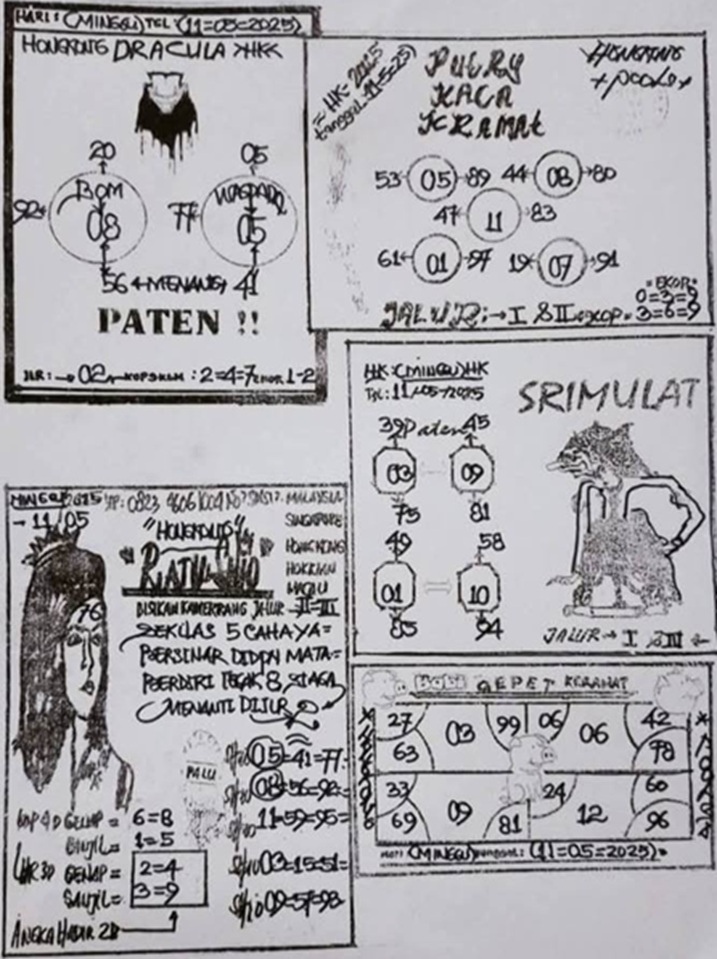 HARI : (MINGGU) TGL : (11=05=2025)
HONGKONG DRACULA HK
20 05
BOM
92 08 77 05
56 MENANG 41
PATEN !!
02 : 2=4=7 1-2
= HK- 2025
tanggal. 11-5-25)
KACA
KRAMAT
HONGKONG
+ pools +
53 05 89 44 08 80
47 11 83
61 01 97 19 07 91
= EKOR =
JALUR : → I & II 3=6=9
HK : (MINGGU) HK
TGL : 11/05-/2025
SRIMULAT
39 Paten 45
03 09
75 81
49 58
01 10
85 94
JALUR → I & III
MINGGU 2025
0823
MALAYSIA
→ 11 / 05
SINGAPORE
"HONGKONG"
HONGKONG
HOKKIAN
MACAU
RATU
76
JALUR II=III
SEKILAS 5 CAHAYA=
BERSINAR DIDPN MATA=
BERDIRI TEGAK 8 SIAGA
MENANTI DIJLR
PALU
Shio 05=41=77=
Shio 08=56=92=
11=59=95=
Shio 03=15=51=
Shio 09=57=93=
6=8
1=5
GENAP = 2=4
GANJIL = 3=9
ANGKA HADIR 2D
HOBI GEPET KERAMAT
27 03 99 06 06 42
63 78
33 09 24 12 60
69 81 96
HARI (MINGGU) TANGGAL : (11=05=2025)=